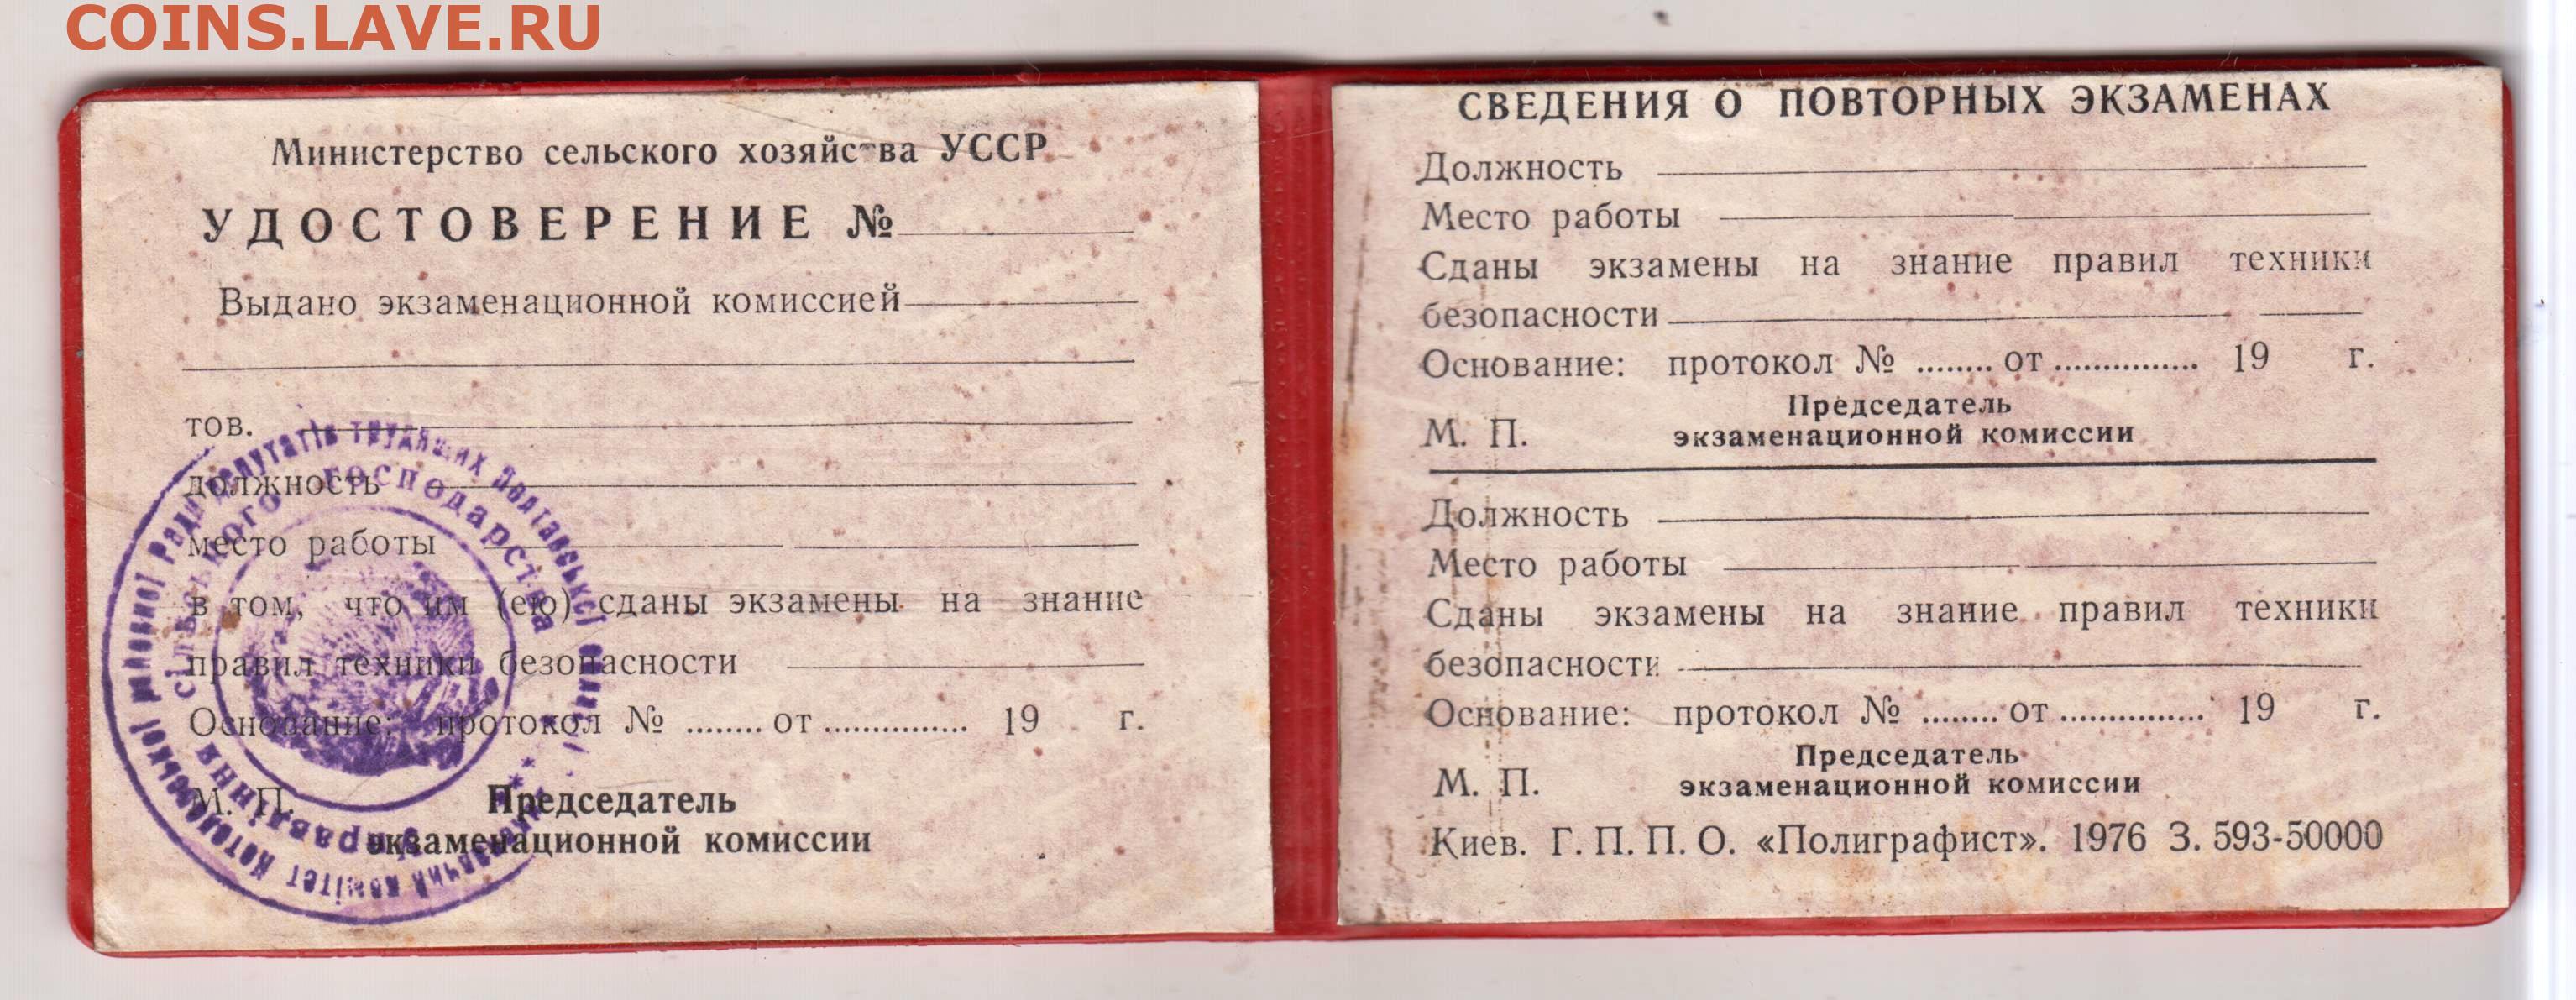 COINS.LAVE.RU
Министерство сельского хозяйства УССР
УДОСТОВЕРЕНИЕ №
Выдано экзаменационной комиссией
тов.
должность
место работы
в том, что им (ею) сданы экзамены на знание
правил техники безопасности
Основание: протокол № ........ от ............... 19 г.
М. П. Председатель
экзаменационной комиссии
районної Ради депутатів трудящих Полтавської
комітет Котелевської
управління сільського господарства
СВЕДЕНИЯ О ПОВТОРНЫХ ЭКЗАМЕНАХ
Должность
Место работы
Сданы экзамены на знание правил техники
безопасности
Основание: протокол № ........ от ............... 19 г.
Председатель
М. П. экзаменационной комиссии
Должность
Место работы
Сданы экзамены на знание правил техники
безопасности
Основание: протокол № ........ от ............... 19 г.
Председатель
М. П. экзаменационной комиссии
Киев. Г. П. П. О. «Полиграфист». 1976 З. 593-50000